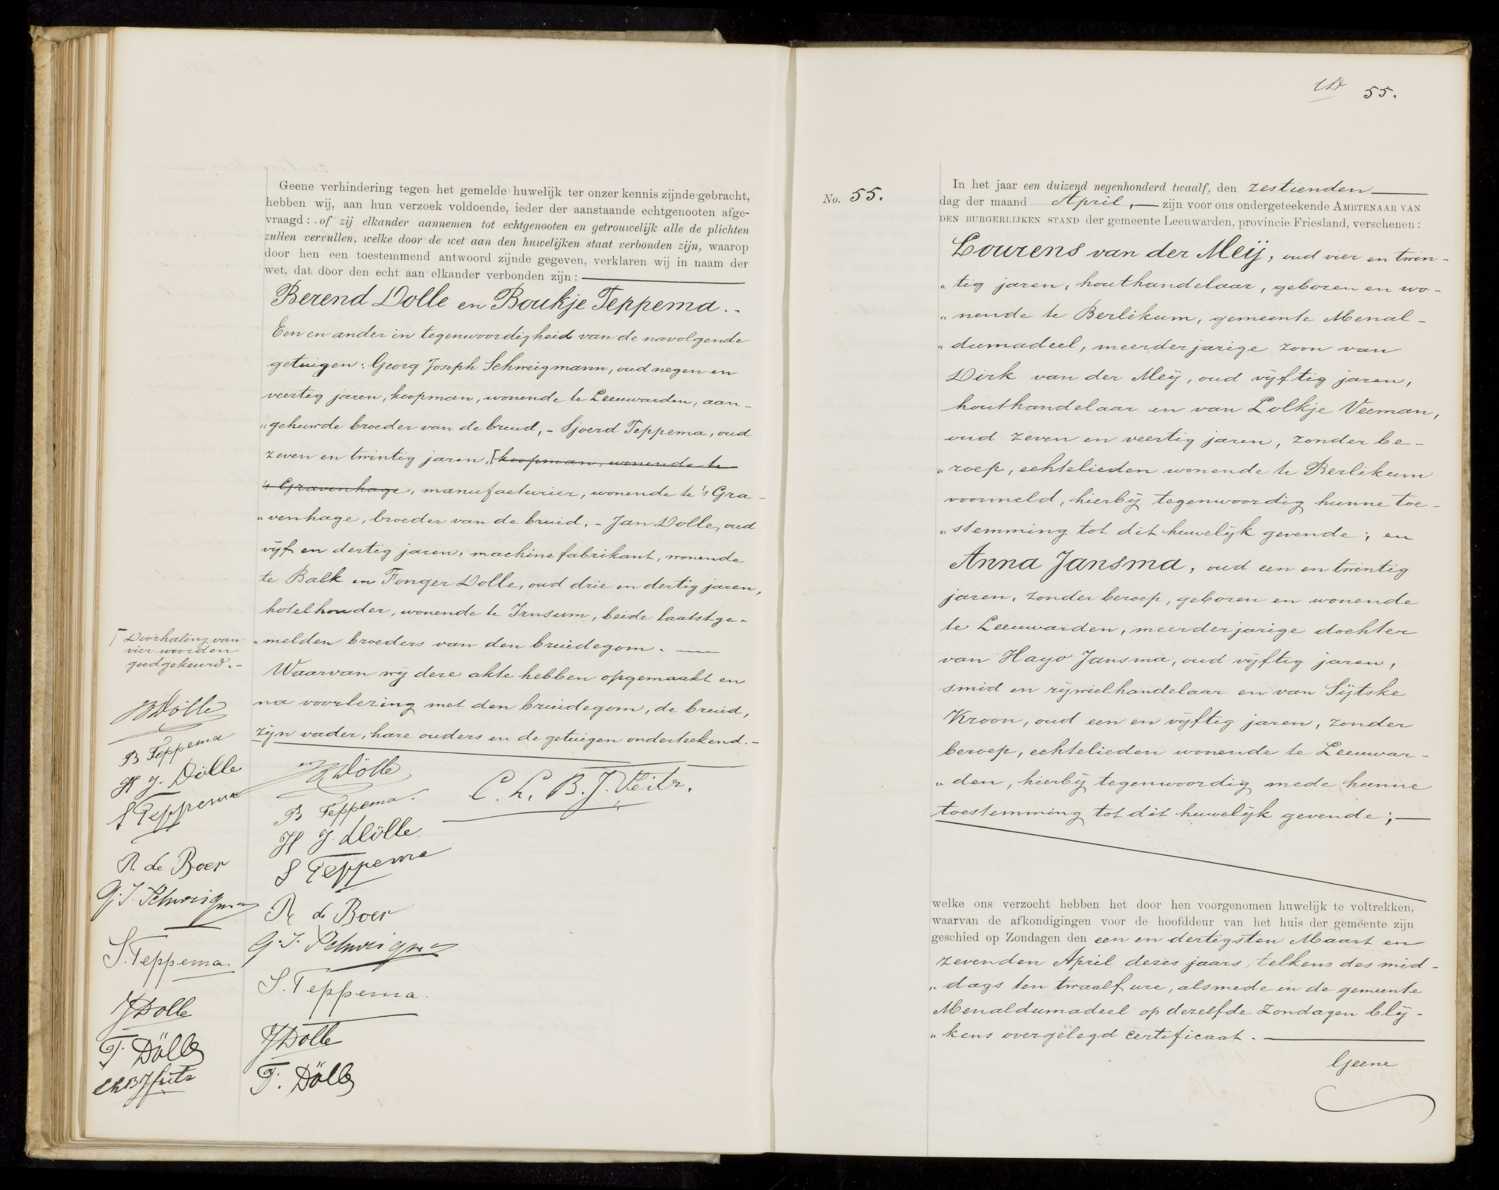 Geene verhindering tegen het gemelde huwelijk ter onzer kennis zijnde gebracht,
hebben wij, aan hun verzoek voldoende, ieder der aanstaande echtgenooten afge-
vraagd: of zij elkander aannemen tot echtgenooten en getrouwelijk alle de plichten
zullen vervullen, welke door de wet aan den huwelijken staat verbonden zijn, waarop
door hen een toestemmend antwoord zijnde gegeven, verklaren wij in naam der
wet, dat door den echt aan elkander verbonden zijn:
Berend Dolle en Boukje Teppema.
Een en ander in tegenwoordigheid van de navolgende
getuigen: Georg Joseph Schweigmann, oud negen en
veertig jaren, koopman, wonende te Leeuwarden, aan-
"gehuwde broeder van de bruid, - Sjoerd Teppema, oud
zeven en twintig jaren, koopman, wonende te
's Gravenhage, manufacturier, wonende te 's Gra-
"venhage, broeder van de bruid, - Jan Dolle, oud
vijf en dertig jaren, machinefabrikant, wonende
te Balk en Fonger Dolle, oud drie en dertig jaren,
hotelhouder, wonende te Irnsum, beide laatstge-
"melden broeders van den bruidegom.
Waarvan wij deze akte hebben opgemaakt en
na voorlezing met den bruidegom, de bruid,
zijn vader, hare ouders en de getuigen onderteekend.-
Doorhaling van
vier woorden
goedgekeurd.-
B Dölle
B Teppema
H J. Dölle
S Teppema
R de Boer
G. J. Schweigmann
S. Teppema.
J Dolle
F. Dölle
B Dölle
B Teppema.
H J Dölle
S Teppema
R de Boer
G. J. Schweigmann
S. Teppema.
J Dolle
F. Dölle
55.
No. 55.
In het jaar een duizend negenhonderd twaalf, den zestienden
dag der maand April, zijn voor ons ondergeteekende AMBTENAAR VAN
DEN BURGERLIJKEN STAND der gemeente Leeuwarden, provincie Friesland, verschenen:
Lourens van der Meij, oud vier en twin-
"tig jaren, houthandelaar, geboren en wo-
"nende te Berlikum, gemeente Menal-
"dumadeel, meerderjarige zoon van
Dirk van der Meij, oud vijftig jaren,
houthandelaar en van Lolkje Veeman,
oud zeven en veertig jaren, zonder be-
"roep, echtelieden wonende te Berlikum
voormeld, hierbij tegenwoordig hunne toe-
"stemming tot dit huwelijk gevende; en
Anna Jansma, oud een en twintig
jaren, zonder beroep, geboren en wonende
te Leeuwarden, meerderjarige dochter
van Hayo Jansma, oud vijftig jaren,
smid en rijwielhandelaar en van Sijtske
Kroon, oud een en vijftig jaren, zonder
beroep, echtelieden wonende te Leeuwar-
"den, hierbij tegenwoordig mede hunne
toestemming tot dit huwelijk gevende;
welke ons verzocht hebben het door hen voorgenomen huwelijk te voltrekken,
waarvan de afkondigingen voor de hoofddeur van het huis der gemeente zijn
geschied op Zondagen den een en dertigsten Maart en
zevenden April dezes jaars, telkens des mid-
"dags ten twaalf ure, alsmede in de gemeente
Menaldumadeel op dezelfde Zondagen blij-
"kens overgelegd certificaat.
Geene